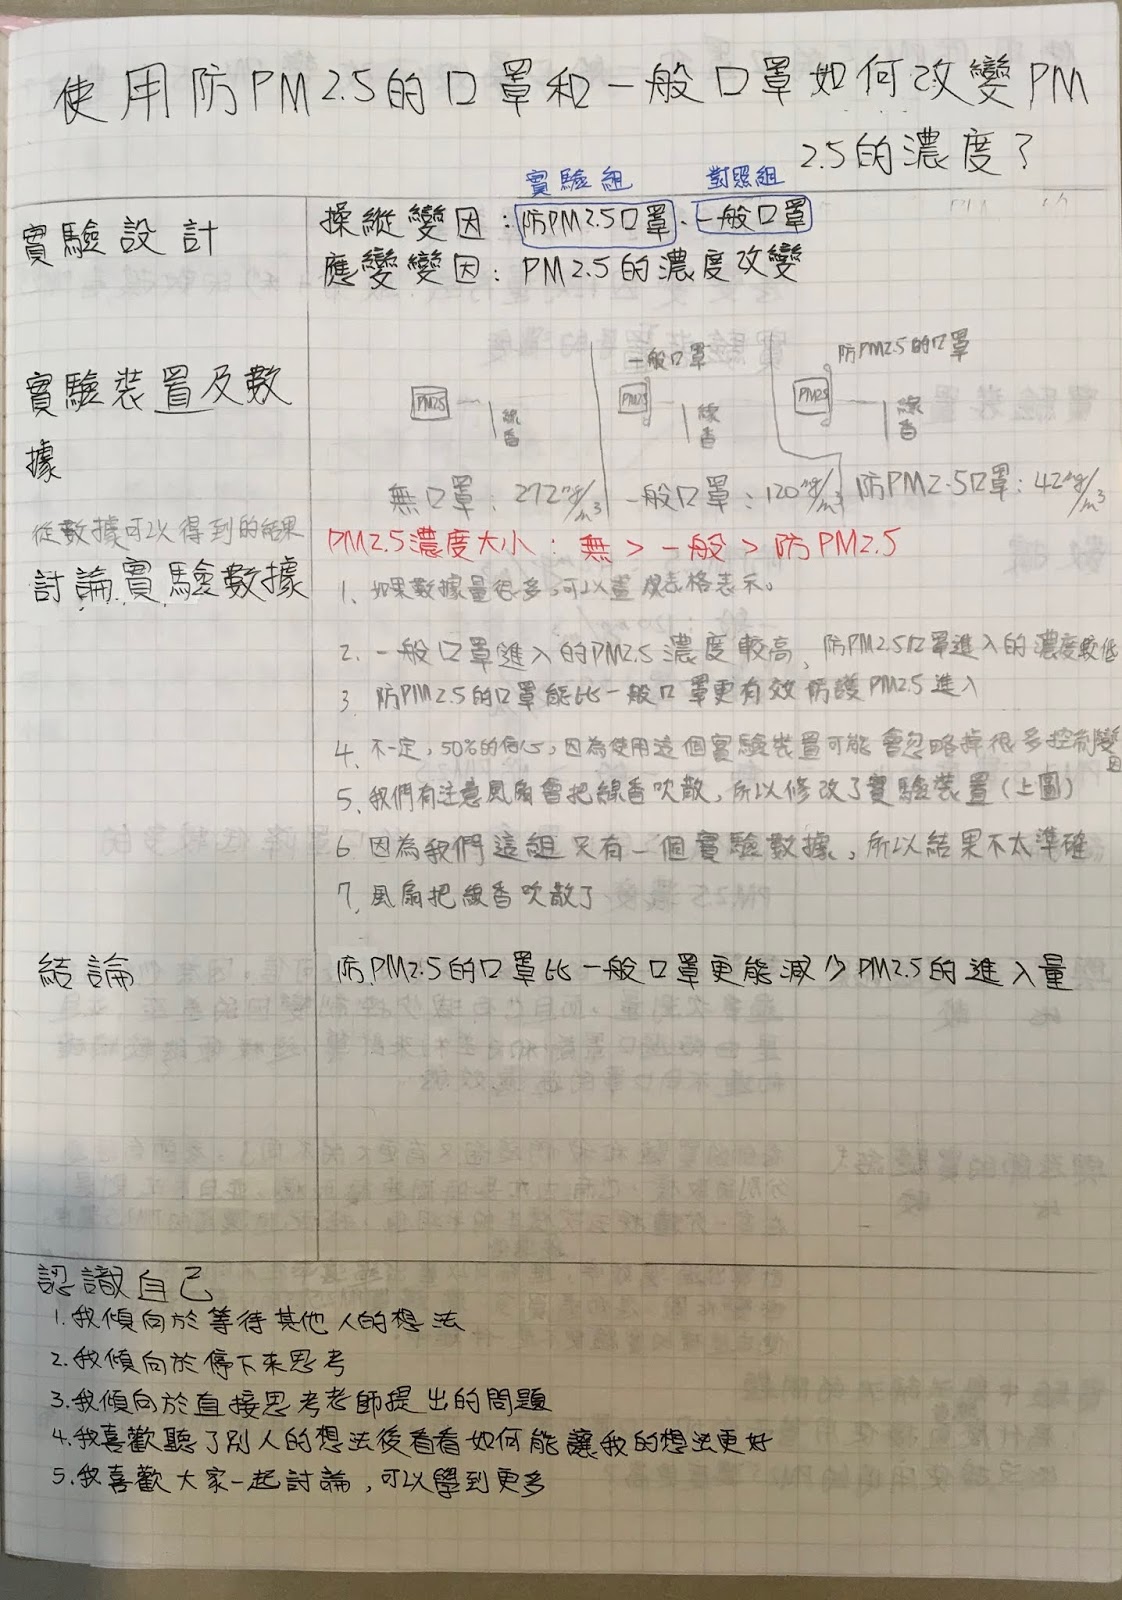 使用防PM2.5的口罩和一般口罩如何改變PM
2.5的濃度?
實驗組 對照組
實驗設計
操縱變因:防PM2.5口罩、一般口罩
應變變因:PM2.5的濃度改變
實驗裝置及數
據
PM2.5 線香
一般口罩
PM2.5 線香
防PM2.5的口罩
PM2.5 線香
無口罩:272 一般口罩:120 防PM2.5口罩:42
從數據可以得到的結果
PM2.5濃度大小:無>一般>防PM2.5
討論實驗數據
1. 如果數據量很多,可以畫成表格表示。
2. 一般口罩進入的PM2.5濃度較高,防PM2.5口罩進入的濃度較低
3. 防PM2.5的口罩能比一般口罩更有效防護PM2.5進入
4. 不一定,50%的信心,因為使用這個實驗裝置可能會忽略掉很多控制變因
5. 我們有注意風扇會把線香吹散,所以修改了實驗裝置(上圖)
6. 因為我們這組只有一個實驗數據,所以結果不太準確
7. 風扇把線香吹散了
結論
防PM2.5的口罩比一般口罩更能減少PM2.5的進入量
認識自己
1.我傾向於等待其他人的想法
2.我傾向於停下來思考
3.我傾向於直接思考老師提出的問題
4.我喜歡聽了別人的想法後看看如何能讓我的想法更好
5.我喜歡大家一起討論,可以學到更多